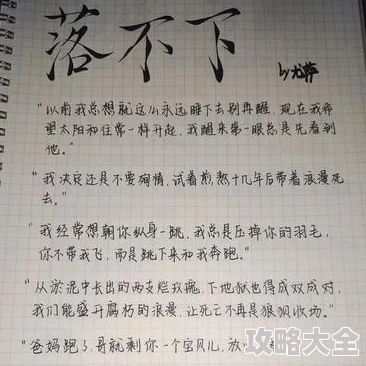 落不下
by尤萨
"以前我总想就这么永远睡下去别再醒，现在我希
望太阳和往常一样升起，我醒来第一眼总是先看到
他。"
"我决定还是不要殉情，试着煎熬十几年后带着浪漫死
去。"
"我经常想朝你纵身一跳，我总是压掉你的羽毛，
你不带我飞，而是跳下来和我奔跑。"
"从淤泥中长出的两支烂玫瑰，下地狱也得成双成对，
我们能盛开腐朽的浪漫，让死亡不再是狼狈收场。"
"爸妈跑了，哥就剩你一个宝贝儿，放
攻略大全